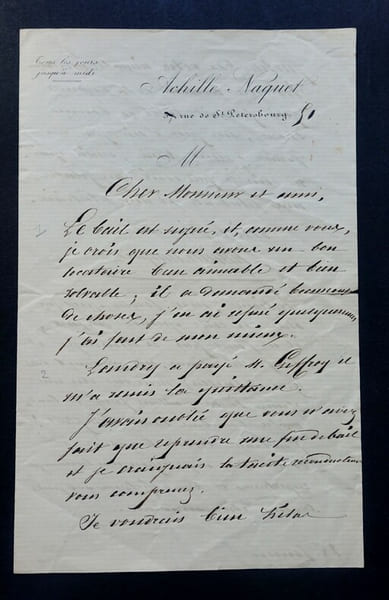 Tous les jours
jusqu'à midi
Achille Naquet
rue de St Petersbourg 51
M
Cher Monsieur et ami,
1
Le bail est signé, et, comme vous,
je crois que nous avons un bon
locataire bien aimable et bien
solvable ; il a demandé beaucoup
de choses, j'en ai refusé quelques unes
j'ai fait de mon mieux.
2
Landry a payé M. Geffroy il
m'a remis la quittance.
J'avais oublié que vous n'aviez
fait que reprendre une fin de bail
et je craignais la tacite reconduction
vous comprenez.
Je voudrais bien